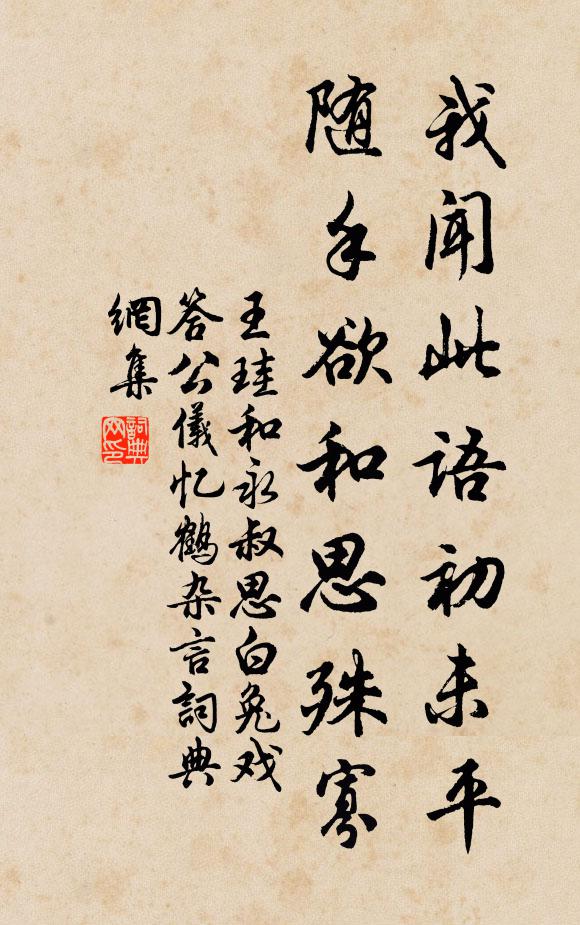 我闻此语初未平
随手欲和思殊寡
王珪和永叔思白兔戏
答公仪忆鹤杂言詞典
網集
詞典
网印